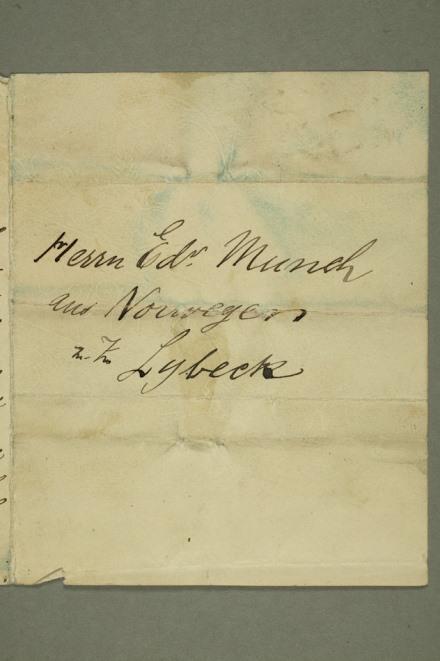 Herrn Edv. Munch
aus Norwegen
z. Z. Lybeck